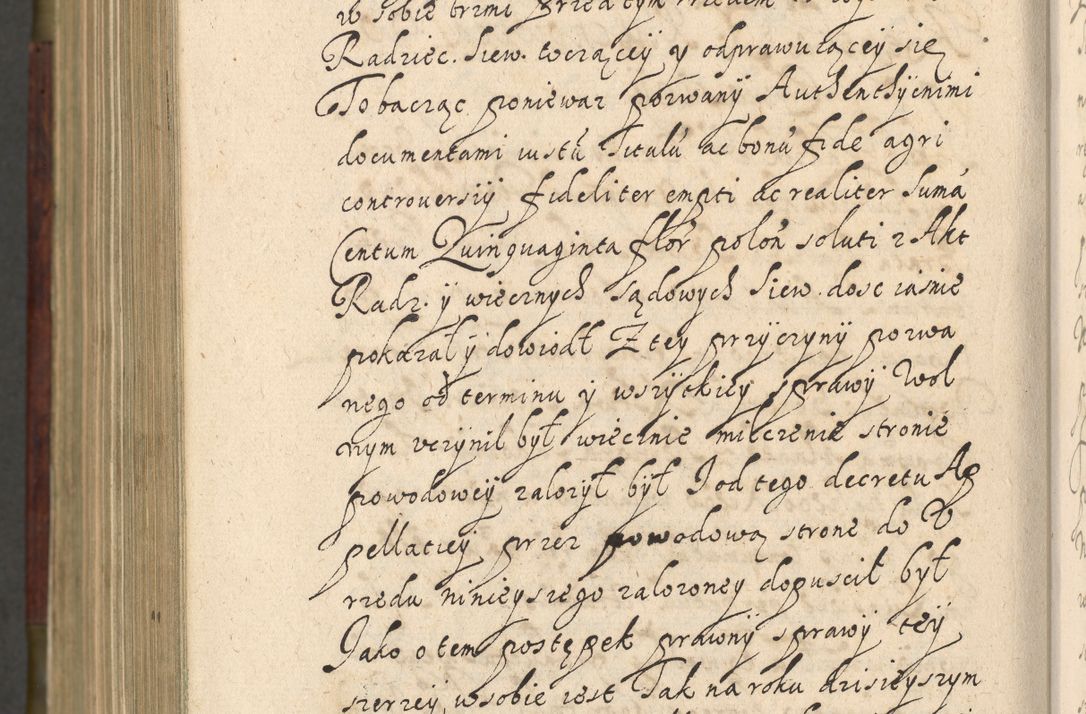 w sobie brzmi przed tym
Radziec. Siew. toczącey y odprawuiącey się
To bacząc poniewaz pozwany Authenthycnimi
documentami iustu titulu ac bonu fide agri
controuersiy fideliter empti ac realiter suma
Centum Quinquaginta flor polon soluti z Akt
Radz. y wiecznych sądowych Siew. dosc iasnie
pokazał y dowiodł Z tey przyczyny pozwa
nego od terminu y wszytkiey sprawy Wol
nym vczynil był wiecznie milczenie stronie
powodowey zalozył był I od tego decretu Ap
pellaciey przez powodową strone do V
rzedu ninieyszego zalozoney dopuscil był
Iako o tem postępek prawny sprawy tey
szerzey w sobie iest Tak na roku dzisieyszym